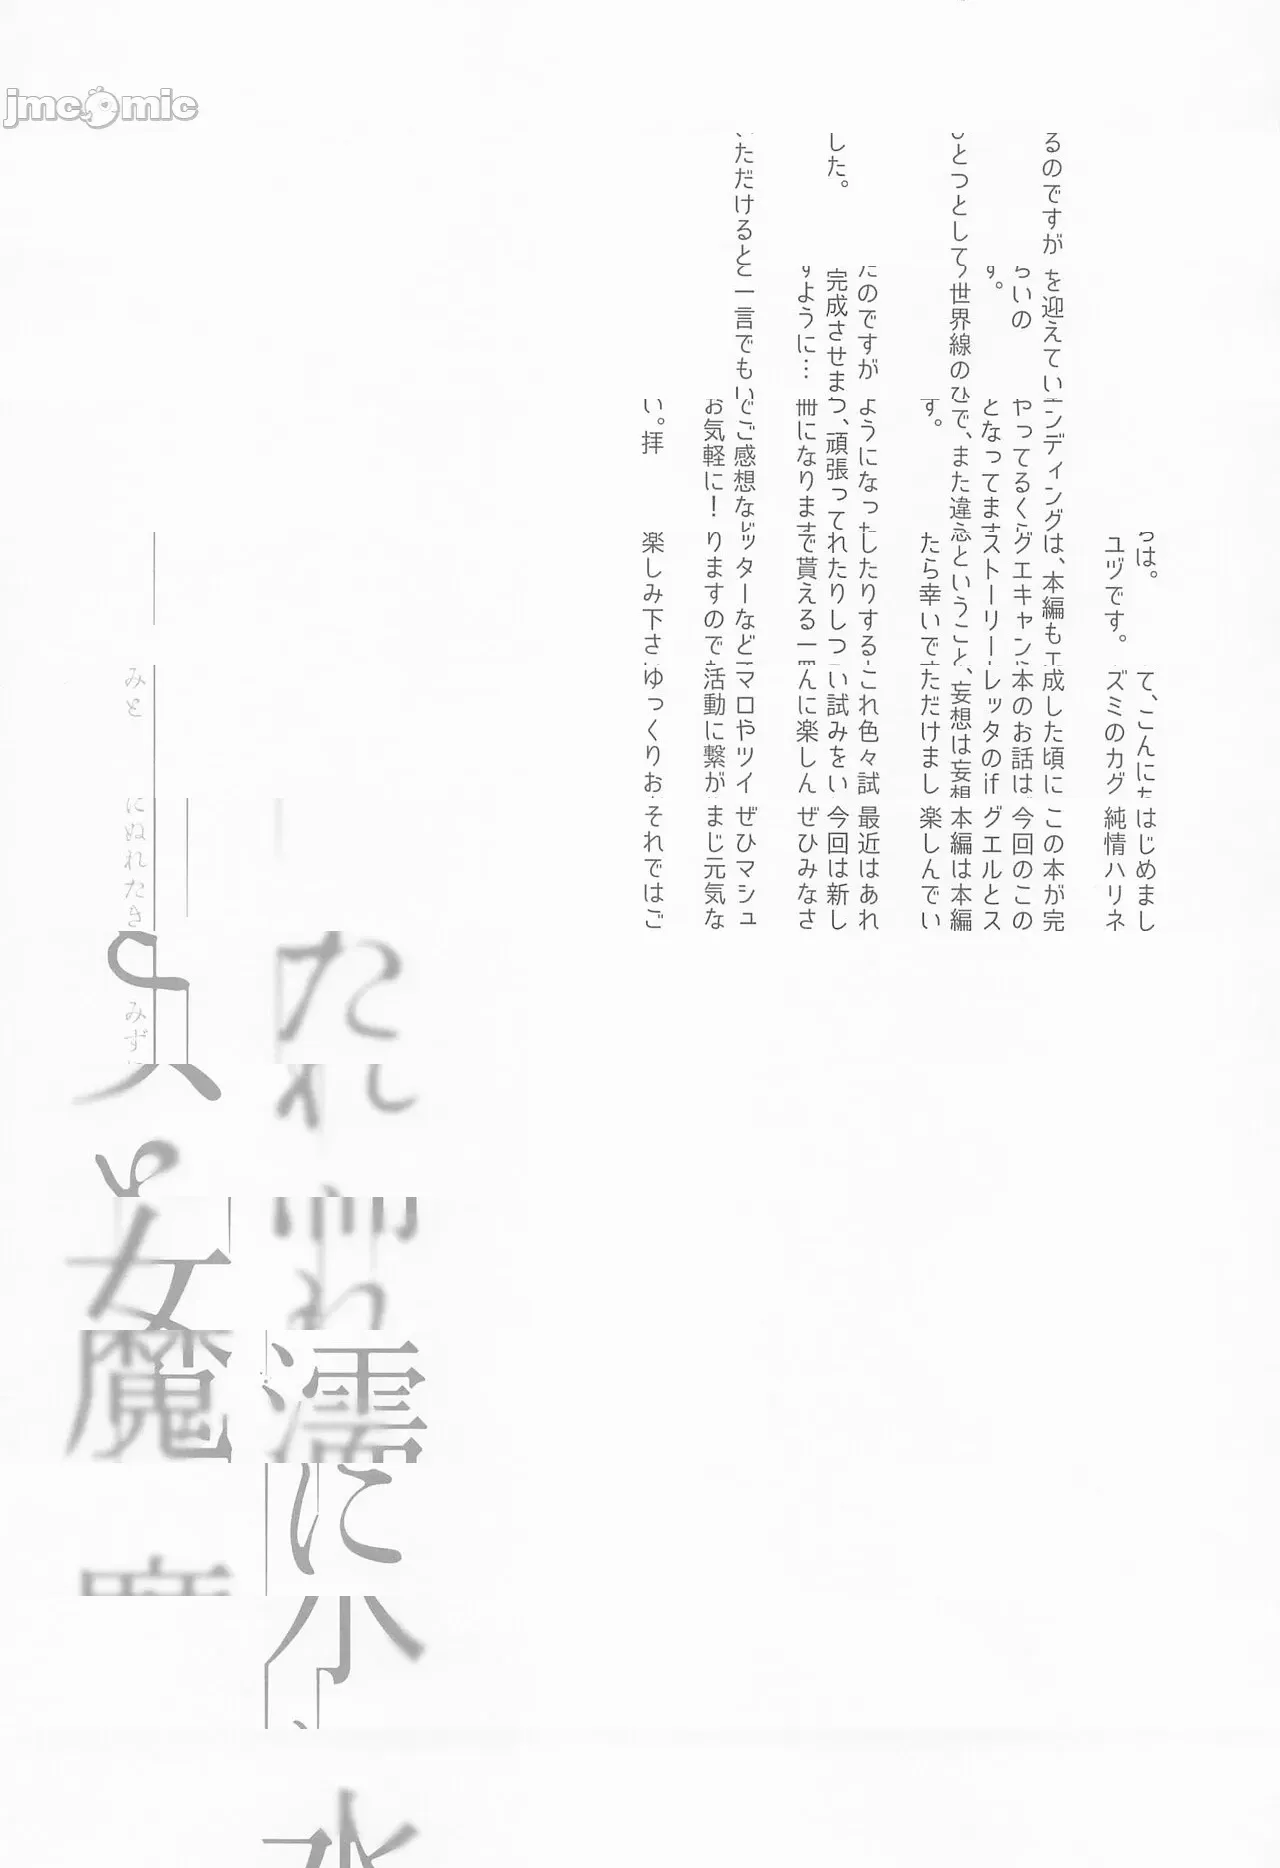 jmcomic
はじめまして、こんにちは。
純情ハリネズミのカグユヅです。
この本が完成した頃には、本編もエンディングを迎えているのですが
今回のこの本のお話はグエキャンやってるくらいの
グエルとスレッタのifストーリーとなってます。
本編は本編、妄想は妄想ということで、また違う世界線のひとつとして
楽しんでいただけましたら幸いです。
最近はあれこれ色々試したりするようになったのですが
今回は新しい試みをいれたりしつつ、頑張って完成させました。
ぜひみなさんに楽しんで貰える一冊になりますように…
ぜひマシュマロやツイッターなどでご感想など一言でもいただけると
まじ元気な活動に繋がりますのでお気軽に！
それではごゆっくりお楽しみ下さい。拝
水に濡れた
魔女と
みずにぬれたきみと